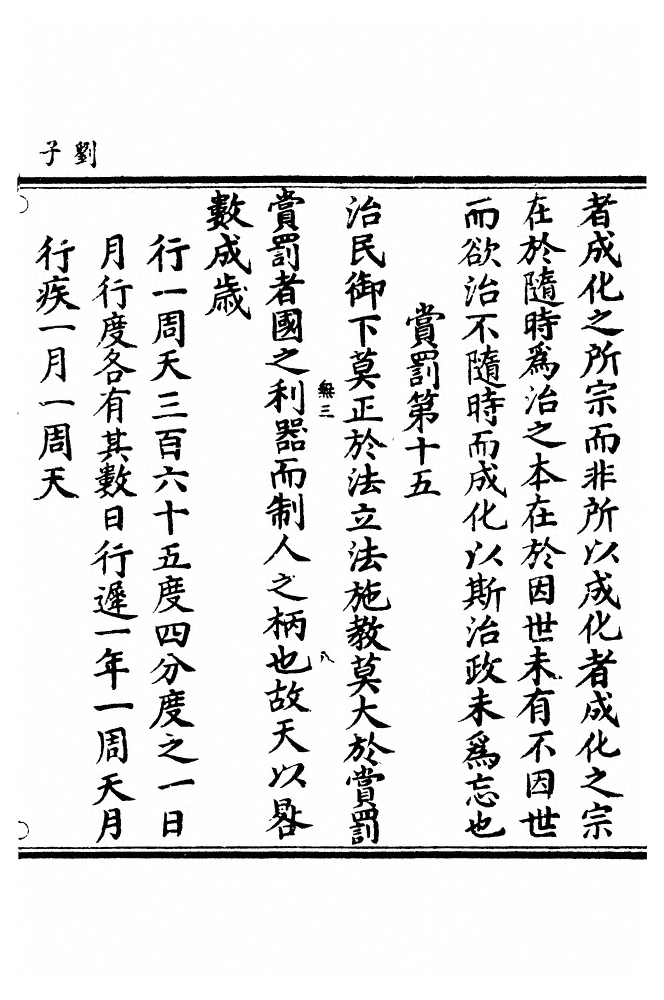 劉子
者成化之所宗而非所以成化者成化之宗
在於隨時為治之本在於因世未有不因世
而欲治不隨時而成化以斯治政未為忘也
賞罰第十五
治民御下莫正於法立法施教莫大於賞罰
無三
八
賞罰者國之利器而制人之柄也故天以晷
數成歲
行一周天三百六十五度四分度之一日
月行度各有其數日行遲一年一周天月
行疾一月一周天